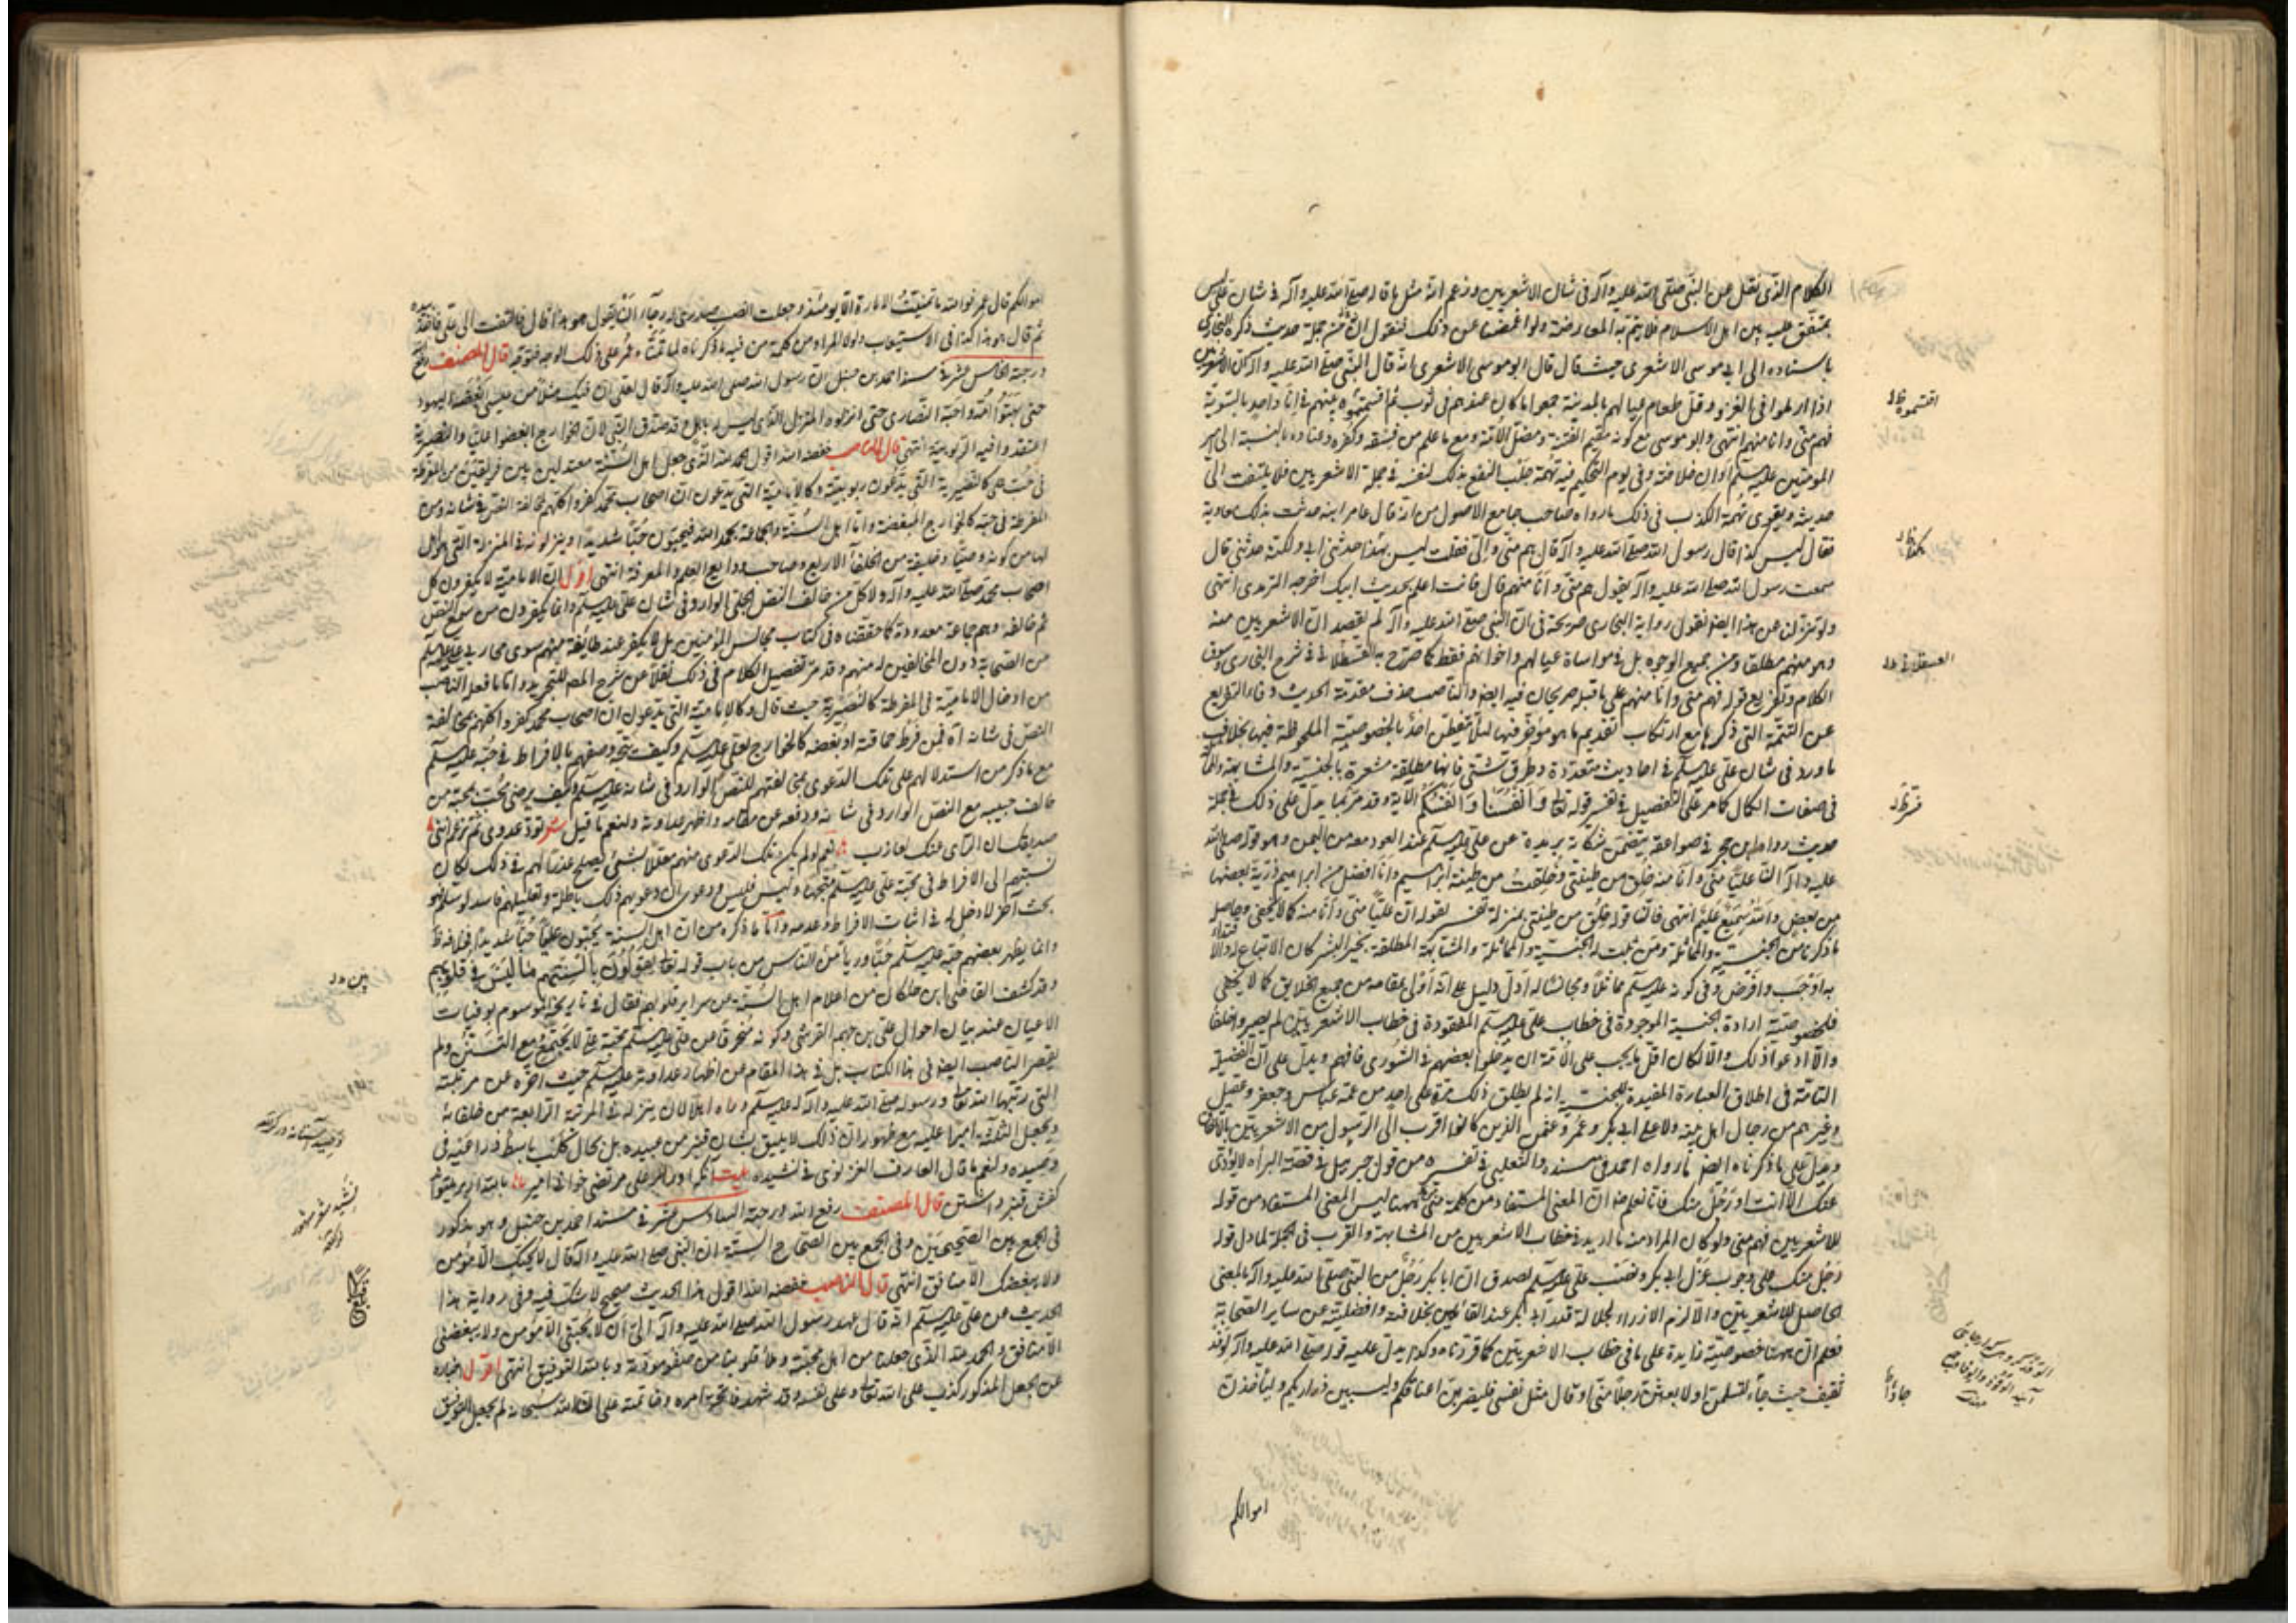 الكلام الذي نقل عن النبي صلى الله عليه وآله في شان الاشعريين وزعم انه مثل ما قاله صلى الله عليه وآله في شان علي ليس
بمتفق عليه بين اهل الاسلام فلا يتم به المعارضة ولو اغمضنا عن ذلك فنقول ان من جملة حديث ذكره البخاري
باسناده الى ابي موسى الاشعري حيث قال قال ابو موسى الاشعري انه قال النبي صلى الله عليه وآله ان الاشعريين
اذا ارملوا في الغزو وقل طعام عيالهم بالمدينة جعوا ما كان عندهم في ثوب ثم اقتسموه بينهم في اناء واحد بالسوية
فهم مني وانا منهم انتهى وابو موسى مع كونه مقيم الفتنة ومضل الامة ومع ما علم من فسقه وكفره وعناده بالنسبة الى امير
المؤمنين عليه السلم اوان خلافته وفي يوم التحكيم فيه تهمة جلب النفع بذلك لنفسه في جملة الاشعريين فلا يلتفت الى
حديثه ويقوى تهمة الكذب في ذلك ما رواه صاحب جامع الاصول من انه قال عامر ابنه حدثت بذلك معاوية
فقال ليس كذا قال رسول الله صلى الله عليه وآله قال هم مني والي فقلت ليس هكذا حدثني ابي ولكنه حدثني قال
سمعت رسول الله صلى الله عليه وآله يقول هم مني وانا منهم قال فانت اعلم بحديث ابيك اخرجه الترمذي انتهى
ولو تنزلنا عن هذا ايضا نقول رواية البخاري صريحة في ان النبي صلى الله عليه وآله لم يقصد ان الاشعريين منه
وهو منهم مطلقا ومن جميع الوجوه بل في مواساة عيالهم واخوانهم فقط كما صرح به القسطلاني في شرح البخاري وسوق
الكلام وتفريع قوله فهم مني وانا منهم على ما قبله صريحان فيه ايضا والناصب حذف مقدمة الحديث وفاء التفريع
عن التتمة التي ذكرها مع ارتكاب تقديم ما هو مؤخر فيها لئلا يتفطن احد بالخصوصية الملحوظة فيها بخلاف
ما ورد في شان علي عليه السلم في احاديث متعددة وطرق شتى فانها مطلقة مشعرة بالجنسية والمشابهة
في صفات الكمال كما مر على التفصيل في تفسير قوله تعالى وانفسنا وانفسكم الاية وقد مر بما يدل على ذلك في جملة
حديث رواه ابن حجر في صواعقه يتضمن شكاية بريدة عن علي عليه السلم عند العود معه من اليمن وهو قوله صلى الله
عليه وآله ان عليا مني وانا منه خلق من طينتي وخلقت من طينة ابراهيم وانا افضل من ابراهيم ذرية بعضها
من بعض والله سميع عليم انتهى فان قوله خلق من طينتي بمنزلة تفسير لقوله ان عليا مني وانا منه كما لا يخفى وحاصل
ما ذكرنا من الجنسية والمماثلة ومن ثبت له الجنسية والمماثلة والمشابهة المطلقة بخير البشر كان الاتباع له والاقتداء
به اوجب وافرض وفي كونه عليه السلم مماثلا ومجانسا له ادل دليل على انه اولى بمقامه من جميع الخلايق كما لا يخفى
فلخصوصية ارادة الجنسية الموجودة في خطاب علي عليه السلم المفقودة في خطاب الاشعريين لم يصيروا خلفا
والا ادعوا ذلك والا لكان اقل ما يجب على الامة ان يدخلوا بعضهم في الشورى فافهم ويدل على ان الفضيلة
التامة في اطلاق العبارة المفيدة للجنسية انه لم يطلق ذلك مرة على احد من عمه عباس وجعفر وعقيل
وغيرهم من رجال اهل بيته ولا على ابي بكر وعمر وعثمن الذين كانوا اقرب الى الرسول من الاشعريين بالاتفاق
ويدل على ما ذكرناه ايضا ما رواه احمد في مسنده والثعلبي في تفسيره من قول جبرئيل في قصة البراءة لا يؤدي
عنك الا انت او رجل منك فانا نعلم ان المعنى المستفاد من كلمة مني ههنا ليس المعنى المستفاد من قوله
للاشعريين فهم مني ولو كان المراد منه ما اريد في خطاب الاشعريين من المشابهة والقرب في الجملة لما دل قوله
رجل منك على وجوب عزل ابي بكر ونصب علي عليه السلم لصدق ان ابا بكر رجل من النبي صلى الله عليه وآله بالمعنى
الحاصل للاشعريين والا لزم الازراء لجلالة قدر ابي بكر عند القائلين بخلافته وافضليته عن ساير الصحابة
فعلم ان ههنا خصوصية زايدة على ما في خطاب الاشعريين كما قررناه وكذا يدل عليه قوله صلى الله عليه وآله لوفد
ثقيف حيث جاء لتسلمن او لابعثن رجلا مني او قال مثل نفسي فليضربن اعناقكم وليسبين ذراريكم وليأخذن
اقتسموه ظ
هكذا ظ
العسقلاني
جاؤا
اموالكم
اموالكم قال عمر فوالله ما تمنيت الامارة الا يومئذ وجعلت انصب صدري له رجاء ان يقول هو هذا قال فالتفت الى علي فاخذ بيده
ثم قال هو هذا كذا في الاستيعاب ولولا المراد من كلمة من فيه ما ذكرناه لما تمنى عمر على ذلك الوجه فتوقد قال المصنف رفع
درجته الخامس عشر في مسند احمد بن حنبل ان رسول الله صلى الله عليه وآله قال لعلي ان فيك مثلا من عيسى ابغضه اليهود
حتى بهتوا امه واحبه النصارى حتى انزلوه المنزل الذي ليس له باهل وقد صدق النبي لان الخوارج ابغضوا عليا والنصيرية
اعتقدوا فيه الربوبية انتهى قال الناصب خفضه الله اقول الحمد لله الذي جعل اهل السنة معتدلين بين فريقين من المفرطة
في حب علي كالنصيرية التي يدعون ربوبيته وكالامامية التي يدعون ان اصحاب محمد كفروا كلهم بمخالفة النص في شانه ومن
المفرطة في حبه كالخوارج المبغضة واما اهل السنة والجماعة بحمد الله فيحبون حبا شديدا وينزلونه في المنزلة التي هو اهل
لها من كونه وصيا وخليفة من الخلفاء الاربع وصاحب ودايع العلم والمعرفة انتهى اقول ان الامامية لا يكفرون كل
اصحاب محمد صلى الله عليه وآله ولا كل من خالف النص الجلي الوارد في شان علي عليه السلم وانما يكفرون من سمع النص
ثم خالفه وهم جماعة معدودة كما حققناه في كتاب مجالس المؤمنين بل لا يكفر عند طائفة منهم سوى محاربي علي عليه السلم
من الصحابة دون المخالفين له منهم وقد مر تفصيل الكلام في ذلك نقلا عن شرح المص للتجريد واما ما فعله الناصب
من ادخال الامامية في المفرطة كالنصيرية حيث قال وكالامامية التي يدعون ان اصحاب محمد كفروا كلهم بمخالفة
النص في شانه اه فمن فرط حماقته او بغضه كالخوارج لعلي عليه السلم وكيف يتجه وصفهم بالافراط في حبه عليه السلم
مع ما ذكر من استدلالهم على تلك الدعوى بمخالفتهم للنص الوارد في شانه عليه السلم وكيف يرضى محب بمحبة من
خالف حبيبه مع النص الوارد في شانه ودفعه عن مقامه واظهر عداوته ولنعم ما قيل شعر تود عدوي ثم تزعم انني
صديقك ان الراى عنك لعازب نعم لو لم يكن تلك الدعوى منهم معللا بشئ يصلح عذرا لهم في ذلك لكان
نسبتهم الى الافراط في محبة علي عليه السلم متجها وليس فليس ودعوى ان دعويهم ذلك باطلة وتعليلهم فاسد لو سلم فهو
بحث آخر لا دخل له في اثبات الافراط وعدمه واما ما ذكره من ان اهل السنة يحبون عليا حبا شديدا فخلاف
وانما يظهر بعضهم حبه عليه السلم حبا ورياء من الناس من باب قوله تعالى يقولون بالسنتهم ما ليس في قلوبهم
وقد كشف القاضي ابن خلكان من اعلام اهل السنة عن سراير قلوبهم فقال في تاريخه الموسوم بوفيات
الاعيان عند بيان احوال علي بن جهم القرشي وكونه منحرفا عن علي عليه السلم محبة علي لا يجتمع مع التسنن ولم
يقصر الناصب ايضا في هذا الكتاب بل في هذا المقام من اظهار عداوته عليه السلم حيث اخره عن مرتبته
التي رتبها الله تعالى ورسوله صلى الله عليه وآله له عليه السلم وراه اهلا لان ينزله في المرتبة الرابعة من خلفائه
ويجعل الثلثة اميرا عليه مع ظهور ان ذلك لا يليق بشان قنبر من عبيده بل بحال كلب باسط ذراعيه في
وصيده ولنعم ما قال العارف الغزنوي في نشيده بيت
كفش قنبر داشتن قال المصنف رفع الله درجته السادس عشر في مسند احمد بن حنبل وهو مذكور
في الجمع بين الصحيحين وفي الجمع بين الصحاح الستة ان النبي صلى الله عليه وآله قال لا يحبك الا مؤمن
ولا يبغضك الا منافق انتهى قال الناصب خفضه الله اقول هذا الحديث صحيح لا شك فيه وفي رواية هذا
الحديث عن علي عليه السلم انه قال عهد رسول الله صلى الله عليه وآله الي ان لا يحبني الا مؤمن ولا يبغضني
الا منافق والحمد لله الذي جعلنا من اهل محبته وملأ قلوبنا من صفو مودته وبالله التوفيق انتهى اقول اخباره
عن الجعل المذكور كذب على الله تعالى وعلى نفسه وقد شهد فاتحة امره وخاتمته على ان الله سبحانه لم يجعل التوفيق